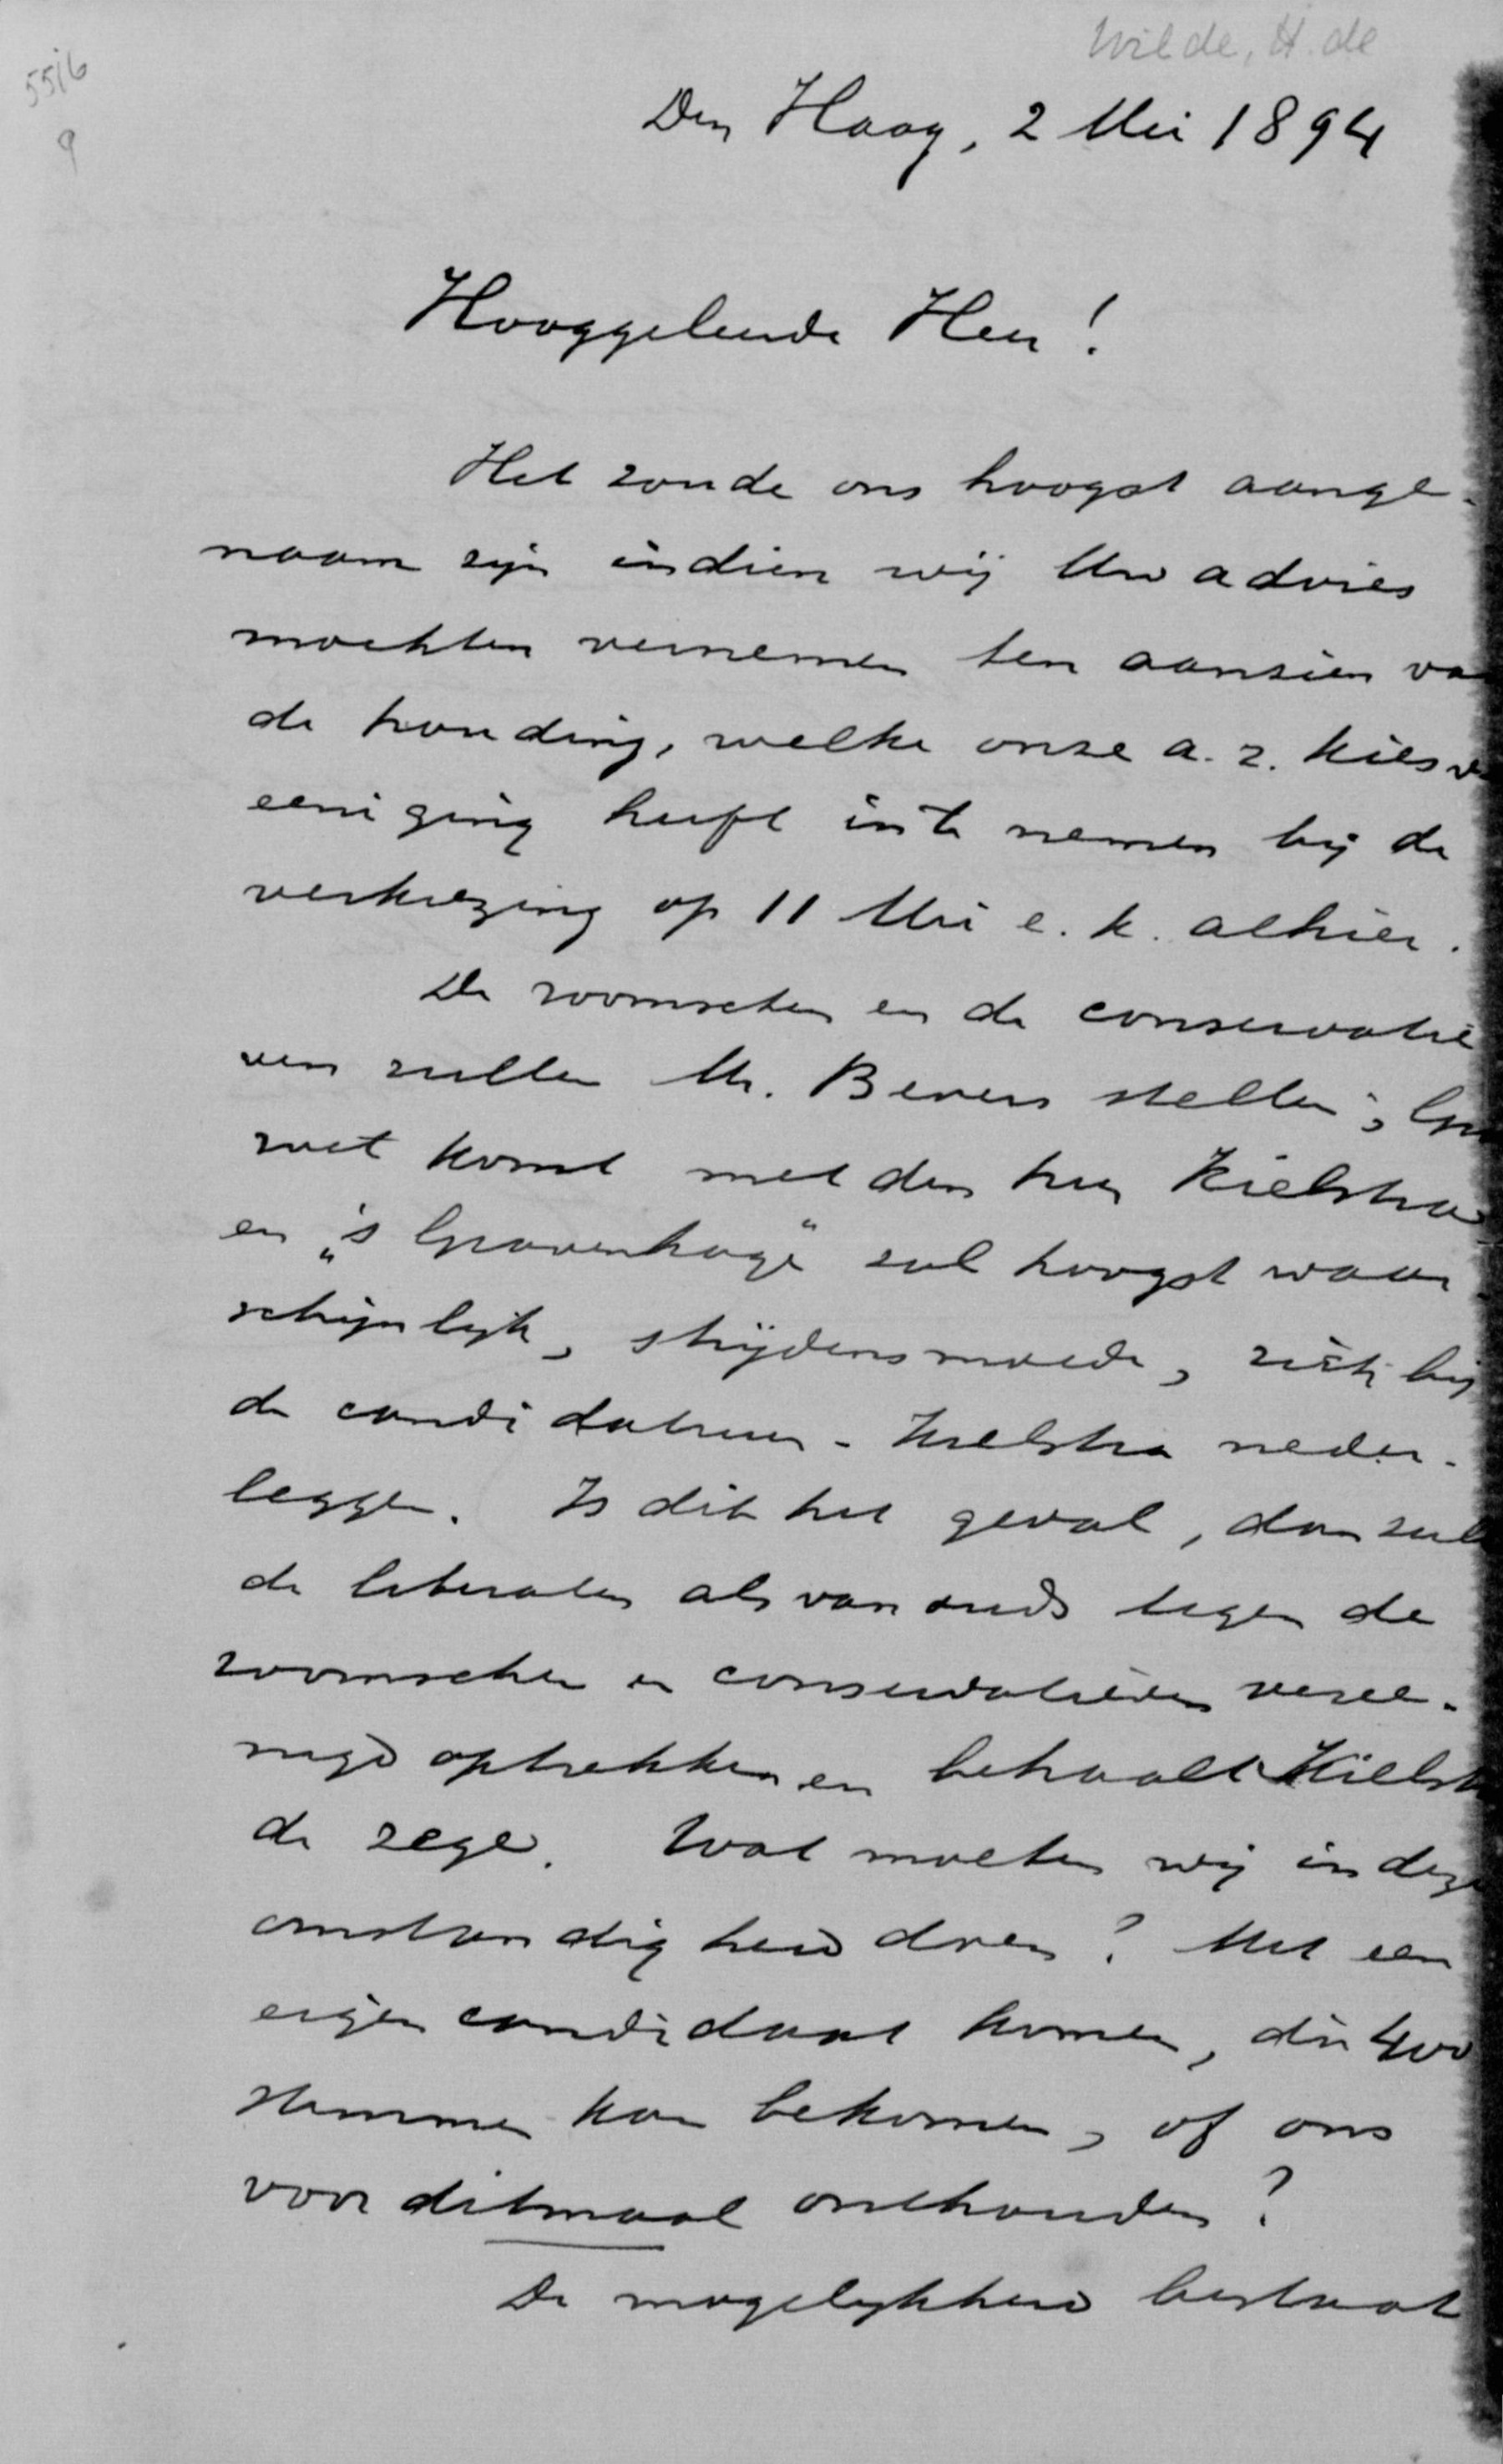 Wilde, H. de
5516
9
Den Haag, 2 Mei 1894
Hooggeleerde Heer!
Het zoude ons hoogst aange-
naam zijn indien wij Uw advies
mochten vernemen ten aanzien va
de houding, welke onze a. r. kiesv
eeniging heeft in te nemen bij de
verkiezing op 11 Mei e. k. alhier.
De roomschen en de conservatie
ven zullen Mr. Bevers stellen; Gro
wet komt met den heer Kielstra
en „'s Gravenhage" zal hoogst waar-
schijnlijk, strijdensmoede, zich bij
de candidatuur-Kielstra neder-
leggen. Is dit het geval, dan zul
de liberalen als van ouds tegen de
roomschen en conservatieven veree-
nigd optrekken en behaalt Kielst
de zege. Wat moeten wij in deze
omstandigheid doen? Met een
eigen candidaat komen, die 400
stemmen kan bekomen, of ons
voor ditmaal onthouden?
De mogelijkheid bestaat